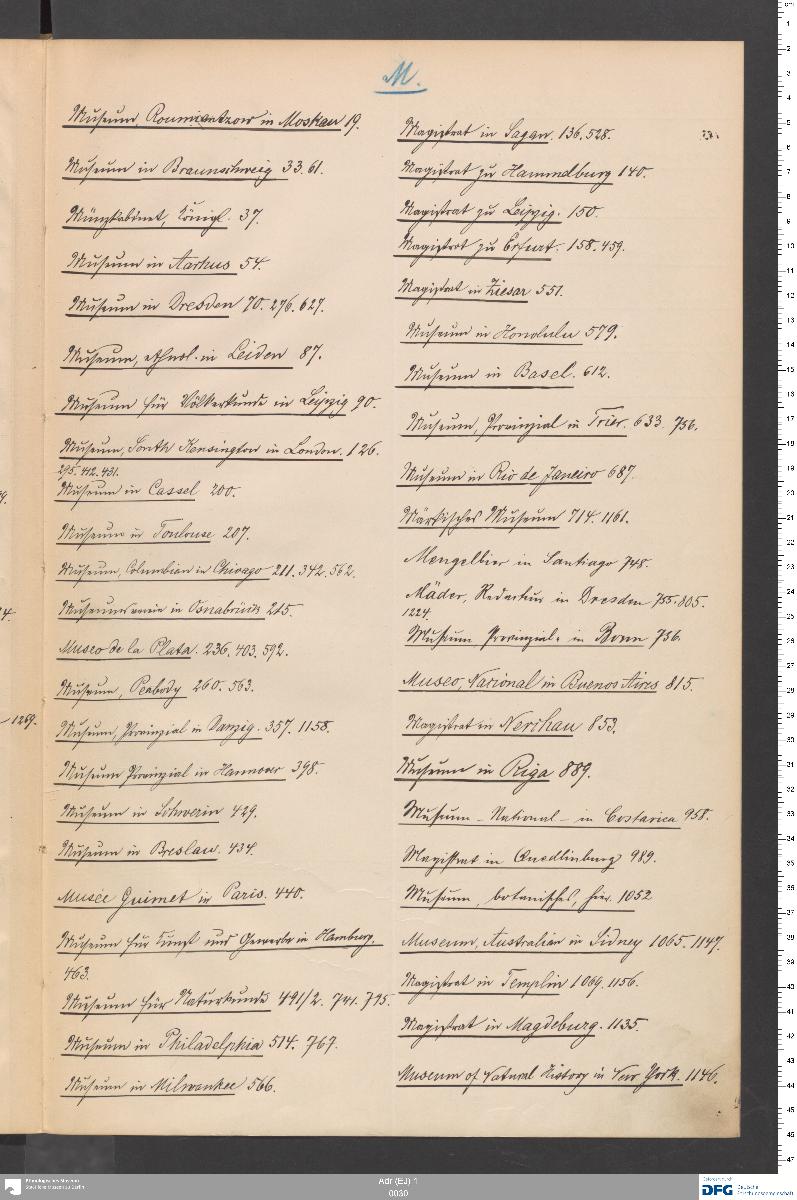 M.
Museum Roumiantzow in Moskau 19.
Museum in Braunschweig 33.61.
Münzkabinet, Königl. 37.
Museum in Aarhus 54.
Museum in Dresden 70.276.627.
Museum, ethnol. in Leiden 87.
Museum für Völkerkunde in Leipzig 90.
Museum, South Kensington in London. 126.
295.412.431.
Museum in Cassel 200.
Museum in Toulouse 207.
Museum, Columbian in Chicago 211.342.562.
Museumsverein in Osnabrück 215.
Museo de la Plata. 236.403.592.
Museum, Peabody 260.563.
Museum, Provinzial in Danzig. 357.1158.
Museum Provinzial in Hannover 398.
Museum in Schwerin 429.
Museum in Breslau. 434.
Musée Guimet in Paris. 440.
Museum für Kunst und Gewerbe in Hamburg.
463.
Museum für Naturkunde 491/2. 741.795.
Museum in Philadelphia 514. 767.
Museum in Milwaukee 566.
Magistrat in Sagan. 136.528.
Magistrat zu Hammelburg 140.
Magistrat zu Leipzig. 150.
Magistrat zu Erfurt. 158.459.
Magistrat in Ziesar 551.
Museum in Honolulu 579.
Museum in Basel. 612.
Museum, Provinzial in Trier. 633. 736.
Museum in Rio de Janeiro 687.
Märkisches Museum 714.1161.
Mengelbier in Santiago 748.
Mäder, Redacteur in Dresden 755.805.
1224.
Museum Provinzial- in Bonn 736.
Museo, Nazional in Buenos Aires 815.
Magistrat in Nerchau 853.
Museum in Riga 889.
Museum - National - in Costarica 958.
Magistrat in Quedlinburg 989.
Museum, botanisches, hier. 1052
Museum, Australian in Sidney 1065.1147.
Magistrat in Templin 1069.1156.
Magistrat in Magdeburg. 1135.
Museum of Natural History in New York. 1146.
1269.
Ethnologisches Museum
Staatliche Museen zu Berlin
Adr (EJ) 1
0030
DFG
Deutsche
Forschungsgemeinschaft